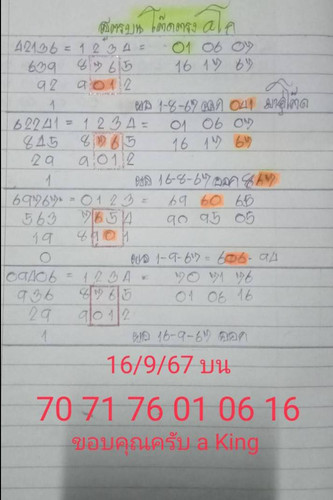 สูตรบน โต๊ดตรง
42136 = 1 2 3 4 = 01 06 07
639 8 7 6 5 16 17 67
92 9 0 1 2
1 ผล 1-8-67 ออก 041
62241 = 1 2 3 4 = 01 06 07
845 8 7 6 5 16 17 67
29 9 0 1 2
1 ผล 16-8-67 ออก 867
69767 = 0 1 2 3 = 69 60 65
563 7 6 5 4 90 95 05
19 8 9 0 1
0 ผล 1-9-67 = 606 - 94
09406 = 1 2 3 4 = 70 71 76
936 8 7 6 5 01 06 16
29 9 0 1 2
1 ผล 16-9-67 ออก
16/9/67 บน
70 71 76 01 06 16
ขอบคุณครับ a King